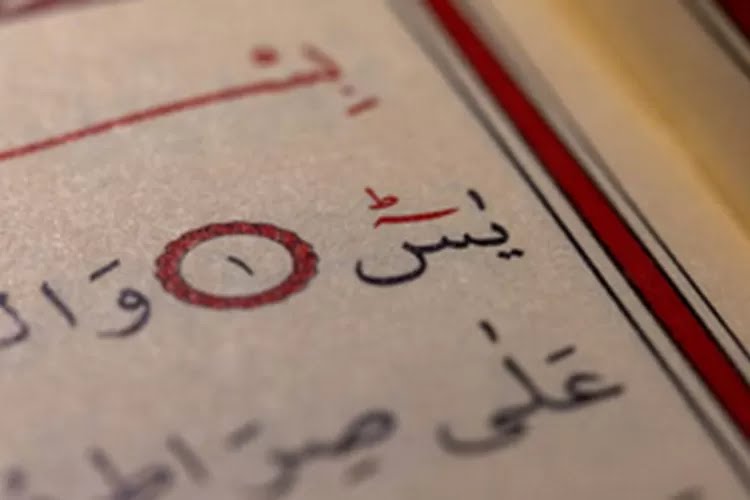 يٰسٓ ۚ ١ وَال
عَلٰى صِرَاطٍ